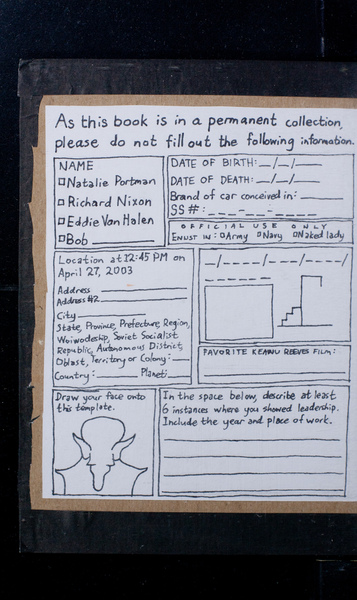 As this book is in a permanent collection,
please do not fill out the following information.
NAME
□ Natalie Portman
□ Richard Nixon
□ Eddie Van Halen
□ Bob ________
DATE OF BIRTH: __/__/__
DATE OF DEATH: __/__/__
Brand of car conceived in: ______
SS #: ___-__-____
OFFICIAL USE ONLY
ENLIST IN: □ Army □ Navy □ Naked lady
Location at 12:45 PM on
April 27, 2003
Address ________
Address #2 ________
City ________
State, Province, Prefecture, Region,
Woiwodeship, Soviet Socialist
Republic, Autonomous District,
Oblast, Territory or Colony: ___
Country: ______ Planet: ___
FAVORITE KEANU REEVES FILM:
Draw your face onto
this template.
In the space below, describe at least
6 instances where you showed leadership.
Include the year and place of work.